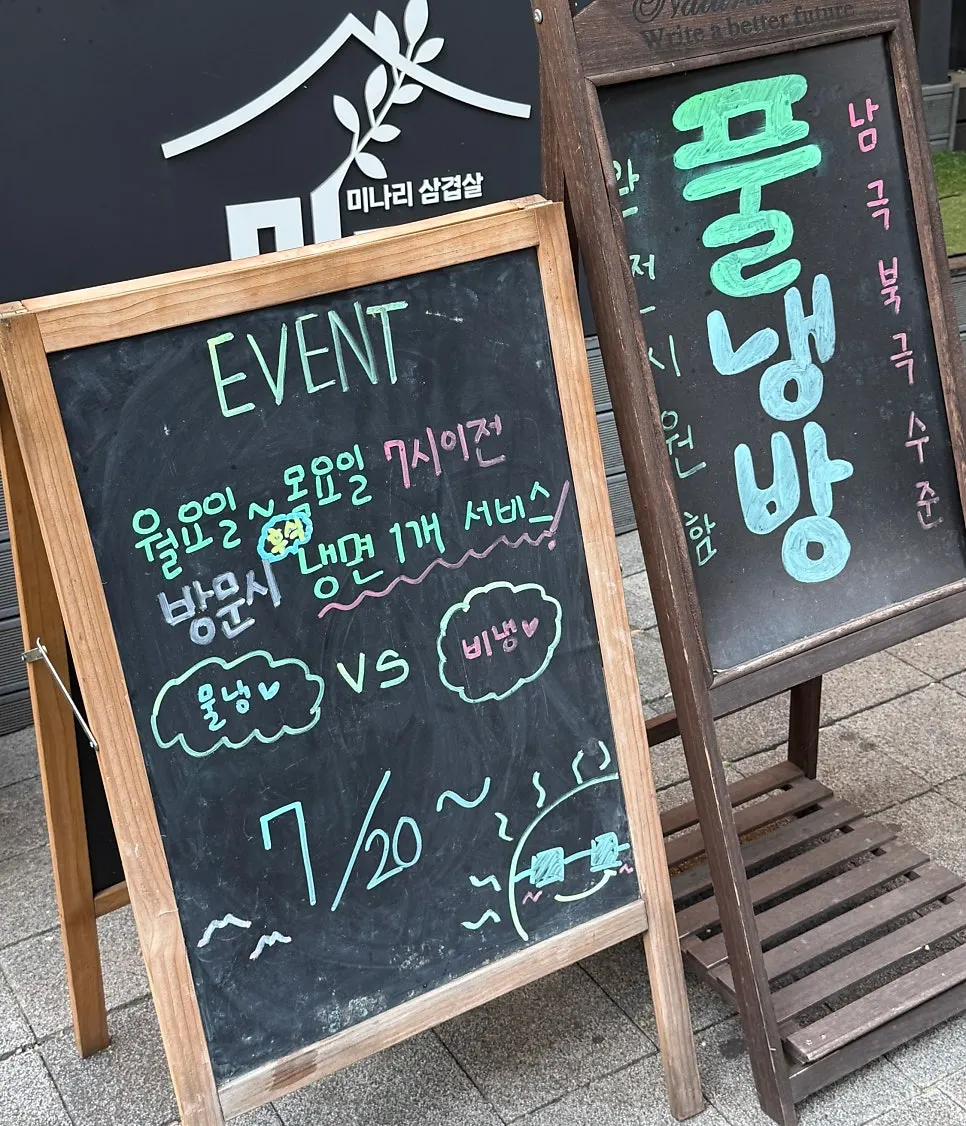 미나리 삼겹살
EVENT
월요일 ~ 목요일 7시이전
방문시 후식 냉면 1개 서비스!
물냉♥ vs 비냉♥
7/20 ~
Write a better future
풀냉방
남극북극수준
완전시원함